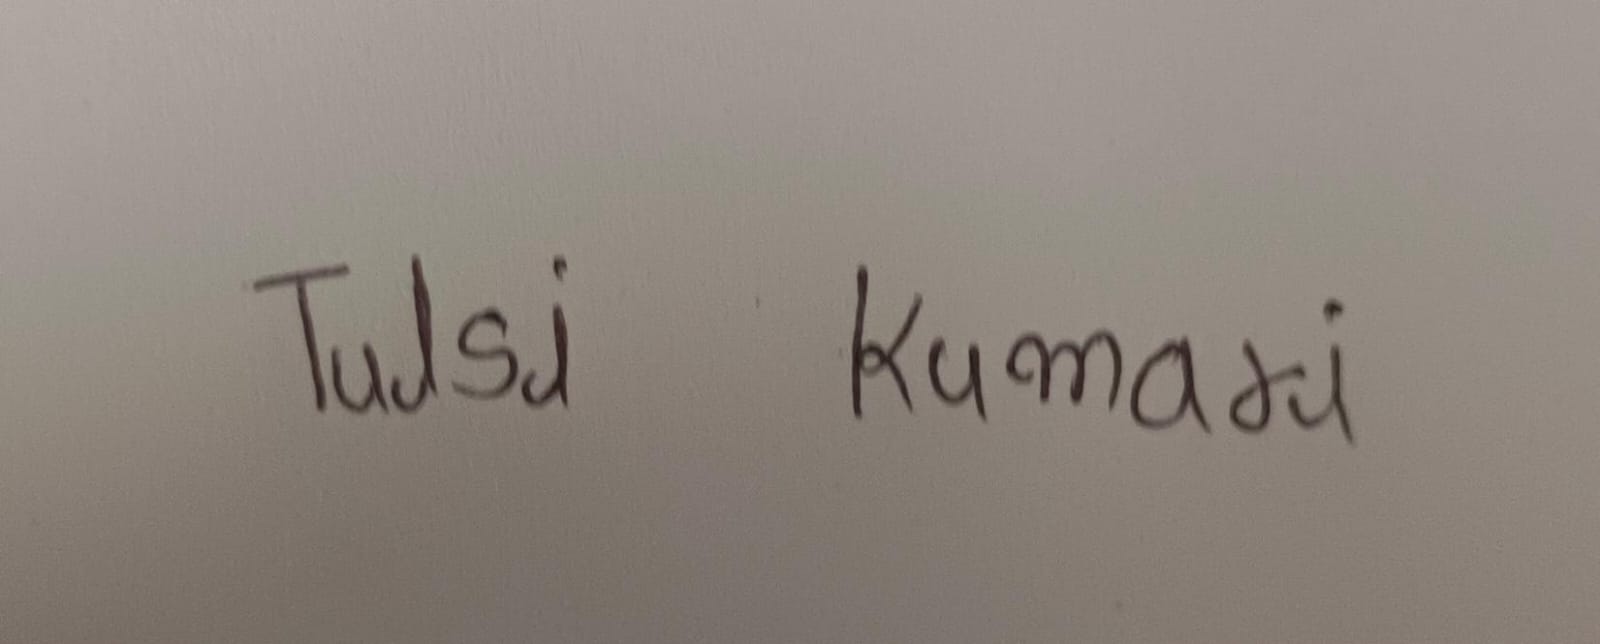 Tulsi Kumari